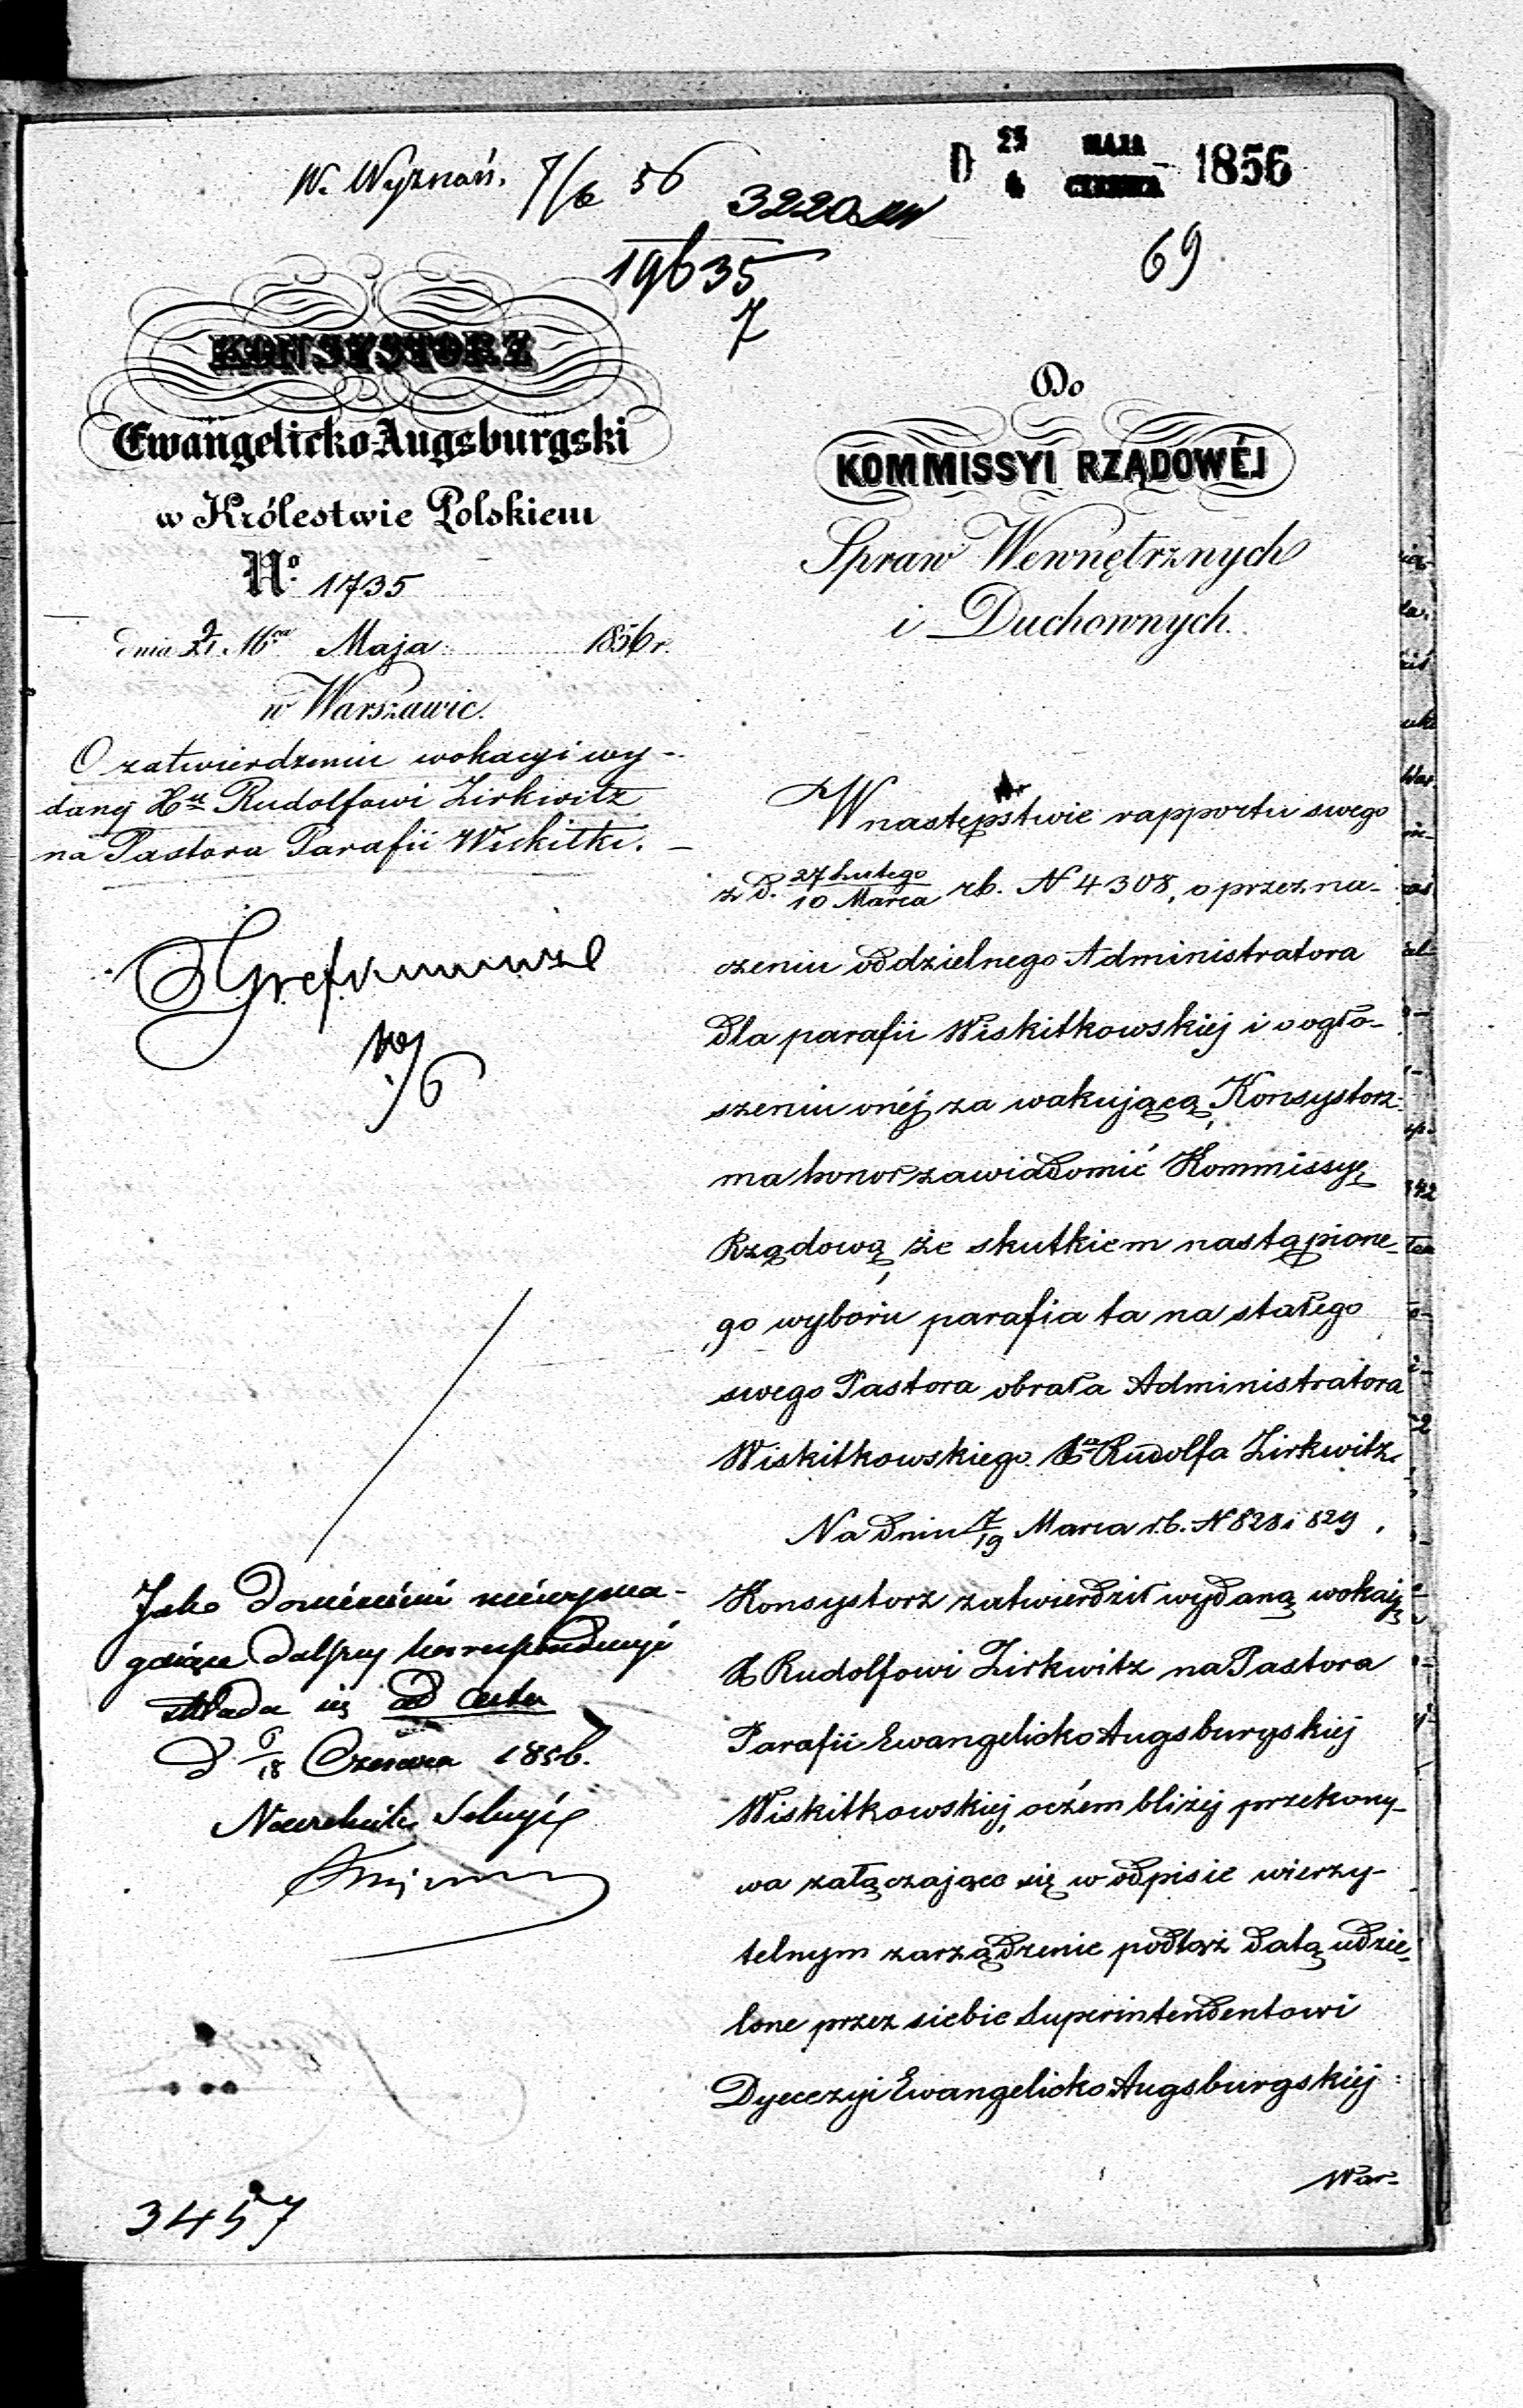 W. Wyznań. 7/6 56
3220
19635
7
D 23 MAJA 1856
4 CZERWCA
69
KONSYSTORZ
Ewangelicko-Augsburgski
w Królestwie Polskiem
No. 1735
dnia 9/21 Maja 1856 r.
w Warszawie.
O zatwierdzeniu wokacyi wy-
danej Xu Rudolfowi Zirkwitz
na Pastora Parafii Wiskitki. –
10/6
Jako doniesienie niewyma-
gające dalszey korrespondencyi
składa się ad acta
D 6/18 Czerwca 1856.
Naczelnik Sekcyi
3457
Do
KOMMISSYI RZĄDOWÉJ
Spraw Wewnętrznych
i Duchownych.
W następstwie rapportu swego
z d. 27 Lutego / 10 Marca rb. N 4308, o przezna-
czeniu oddzielnego Administratora
dla parafii Wiskitkowskiej i o ogło-
szeniu onéj za wakującą, Konsystorz
ma honor zawiadomić Kommissyę
Rządową, że skutkiem nastąpione-
go wyboru parafia ta na stałego
swego Pastora obrała Administratora
Wiskitkowskiego Xa Rudolfa Zirkwitz.
Na dniu 7/19 Marca r.b. N 828 i 829,
Konsystorz zatwierdził wydaną wokacyę
X Rudolfowi Zirkwitz na Pastora
Parafii Ewangelicko Augsburgskiej
Wiskitkowskiej, o czém bliżej przekony-
wa załączające się w odpisie wierzy-
telnym zarządzenie pod tąż datą udzie-
lone przez siebie Superintendentowi
Dyecezyi Ewangelicko Augsburgskiej
War-